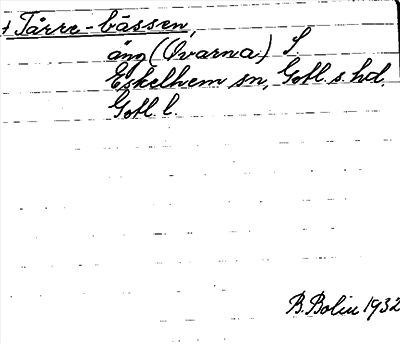 † Tärre-bässen,
äng (Ovarna) S.
Eskelhem sn, Gotl. s. hd.
Gotl. l.
B. Bolin 1932